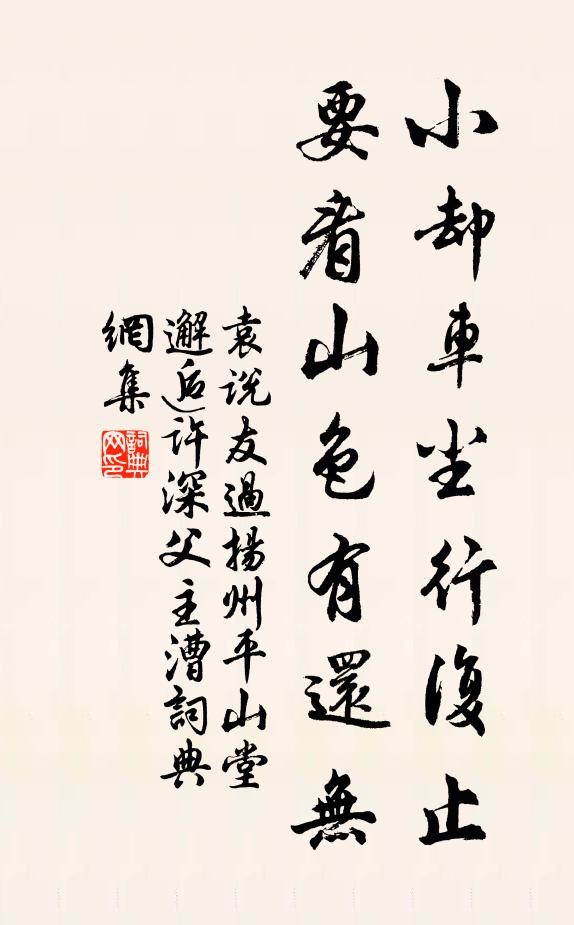 小却車塵行復止
要看山色有還無
袁說友過揚州平山堂
邂逅許深父主漕詞典
網集
詞典網印